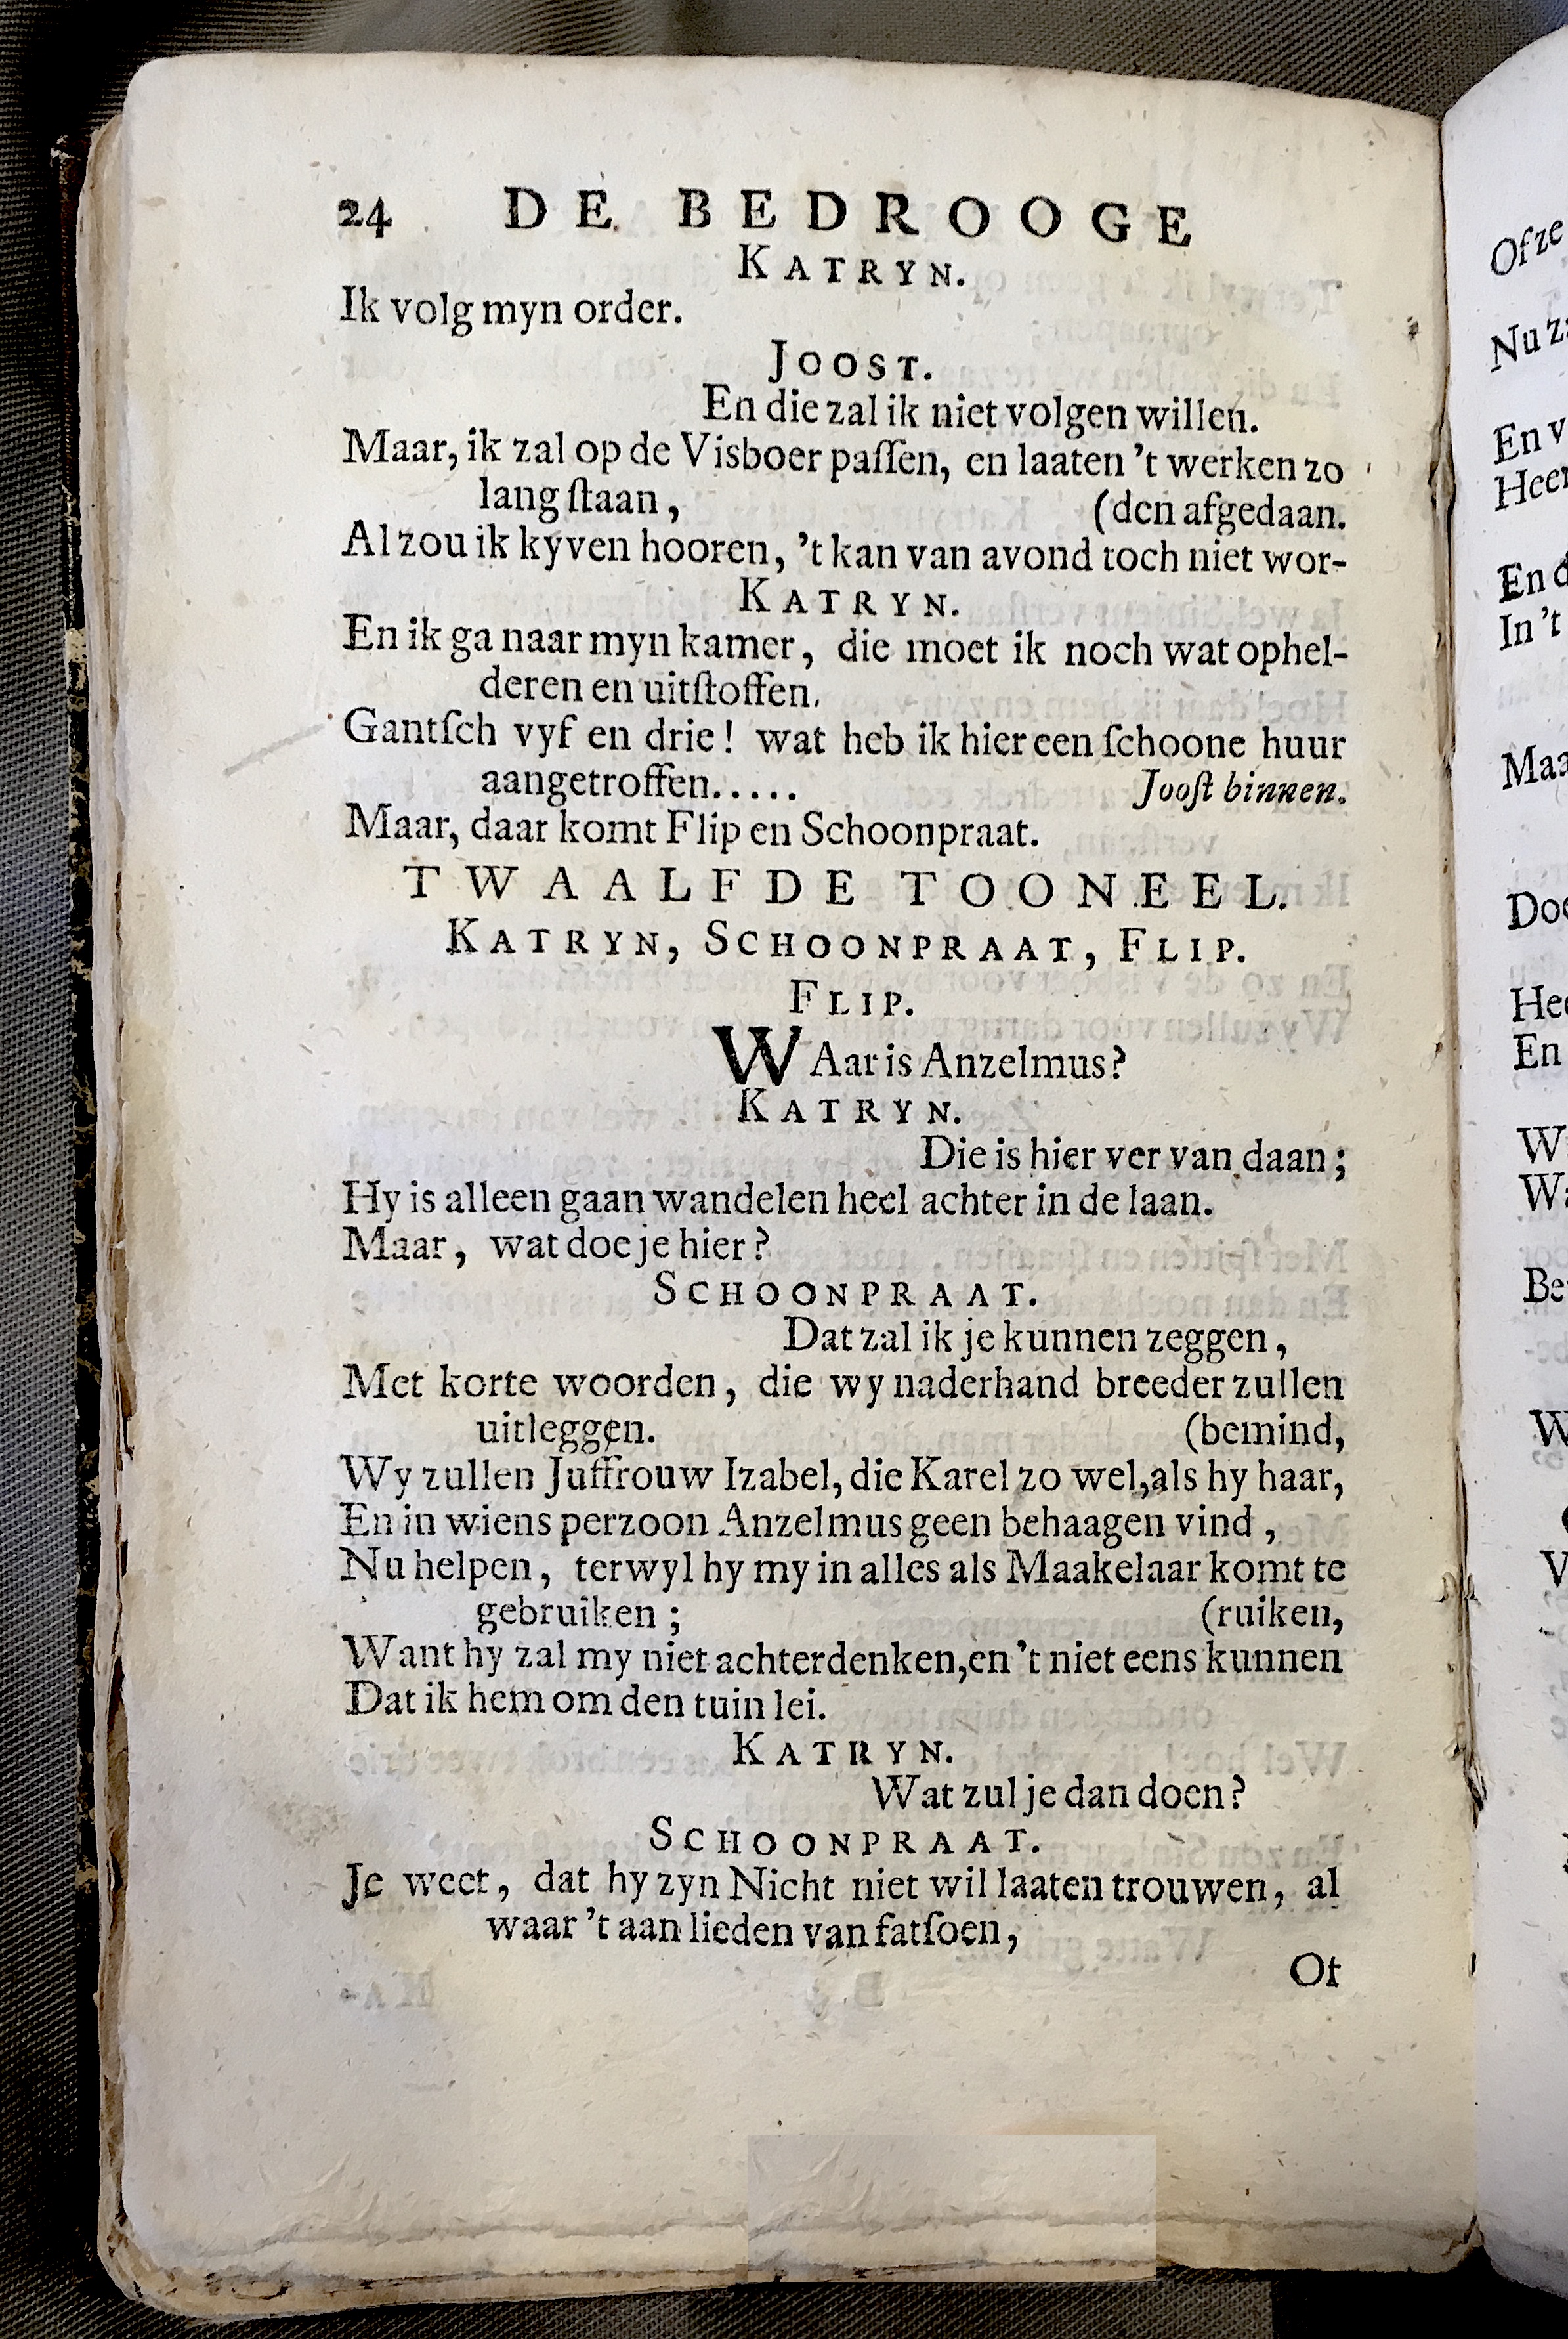 24 DE BEDROOGE
KATRYN.
Ik volg myn order.
JOOST.
En die zal ik niet volgen willen.
Maar, ik zal op de Visboer paſſen, en laaten 't werken zo
lang ſtaan, (den afgedaan.
Al zou ik kyven hooren, 't kan van avond toch niet wor-
KATRYN.
En ik ga naar myn kamer, die moet ik noch wat ophel-
deren en uitſtoffen.
Gantſch vyf en drie! wat heb ik hier een ſchoone huur
aangetroffen..... Jooſt binnen.
Maar, daar komt Flip en Schoonpraat.
TWAALFDE TOONEEL.
KATRYN, SCHOONPRAAT, FLIP.
FLIP.
WAar is Anzelmus?
KATRYN.
Die is hier ver van daan;
Hy is alleen gaan wandelen heel achter in de laan.
Maar, wat doe je hier?
SCHOONPRAAT.
Dat zal ik je kunnen zeggen,
Met korte woorden, die wy naderhand breeder zullen
uitleggen. (bemind,
Wy zullen Juffrouw Izabel, die Karel zo wel, als hy haar,
En in wiens perzoon Anzelmus geen behaagen vind,
Nu helpen, terwyl hy my in alles als Maakelaar komt te
gebruiken; (ruiken,
Want hy zal my niet achterdenken, en 't niet eens kunnen
Dat ik hem om den tuin lei.
KATRYN.
Wat zul je dan doen?
SCHOONPRAAT.
Je weet, dat hy zyn Nicht niet wil laaten trouwen, al
waar 't aan lieden van fatſoen,
Of